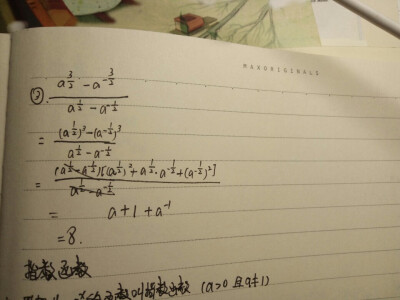 MARORIGINALS
②. (a^{3/2} - a^{-3/2}) / (a^{1/2} - a^{-1/2})
= ((a^{1/2})^3 - (a^{-1/2})^3) / (a^{1/2} - a^{-1/2})
= (a^{1/2} - a^{-1/2})[(a^{1/2})^2 + a^{1/2}·a^{-1/2} + (a^{-1/2})^2] / (a^{1/2} - a^{-1/2})
= a+1+a^{-1}
=8.
指数函数
的函数叫指数函数 (a>0 且a≠1)